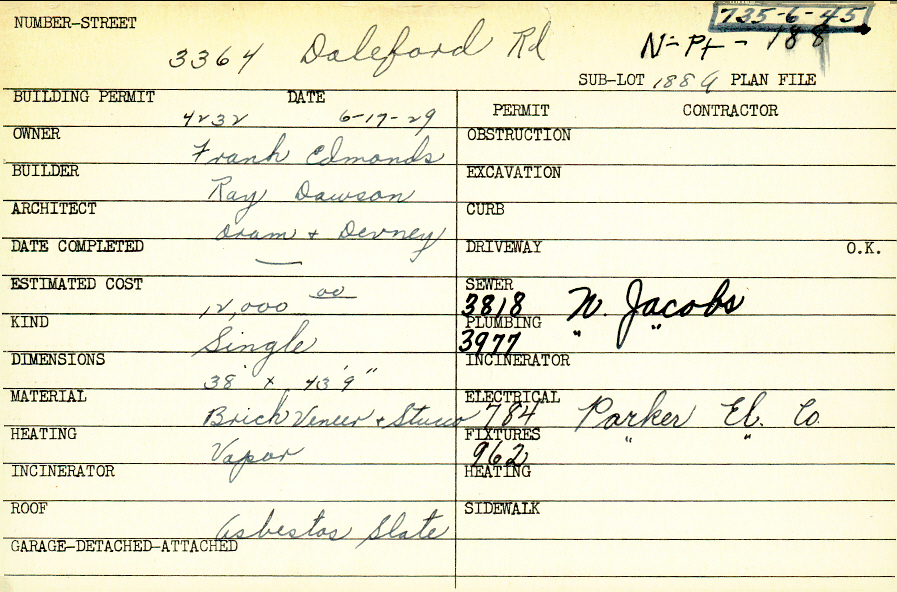 NUMBER-STREET 3364 Daleford Rd
735-6-45
N-Pt-188
SUB-LOT 188 PLAN FILE
BUILDING PERMIT 4232 DATE 6-17-29
OWNER Frank Edmonds
BUILDER Ray Dawson
ARCHITECT Oram + Devney
DATE COMPLETED —
ESTIMATED COST 12,000 00
KIND Single
DIMENSIONS 38' x 43'9"
MATERIAL Brick Veneer + Stucco
HEATING Vapor
INCINERATOR
ROOF Asbestos Slate
GARAGE-DETACHED-ATTACHED
PERMIT CONTRACTOR
OBSTRUCTION
EXCAVATION
CURB
DRIVEWAY O.K.
SEWER 3818 N. Jacobs
PLUMBING 3977 " "
INCINERATOR
ELECTRICAL 784 Parker El. Co.
FIXTURES 962 " "
HEATING
SIDEWALK